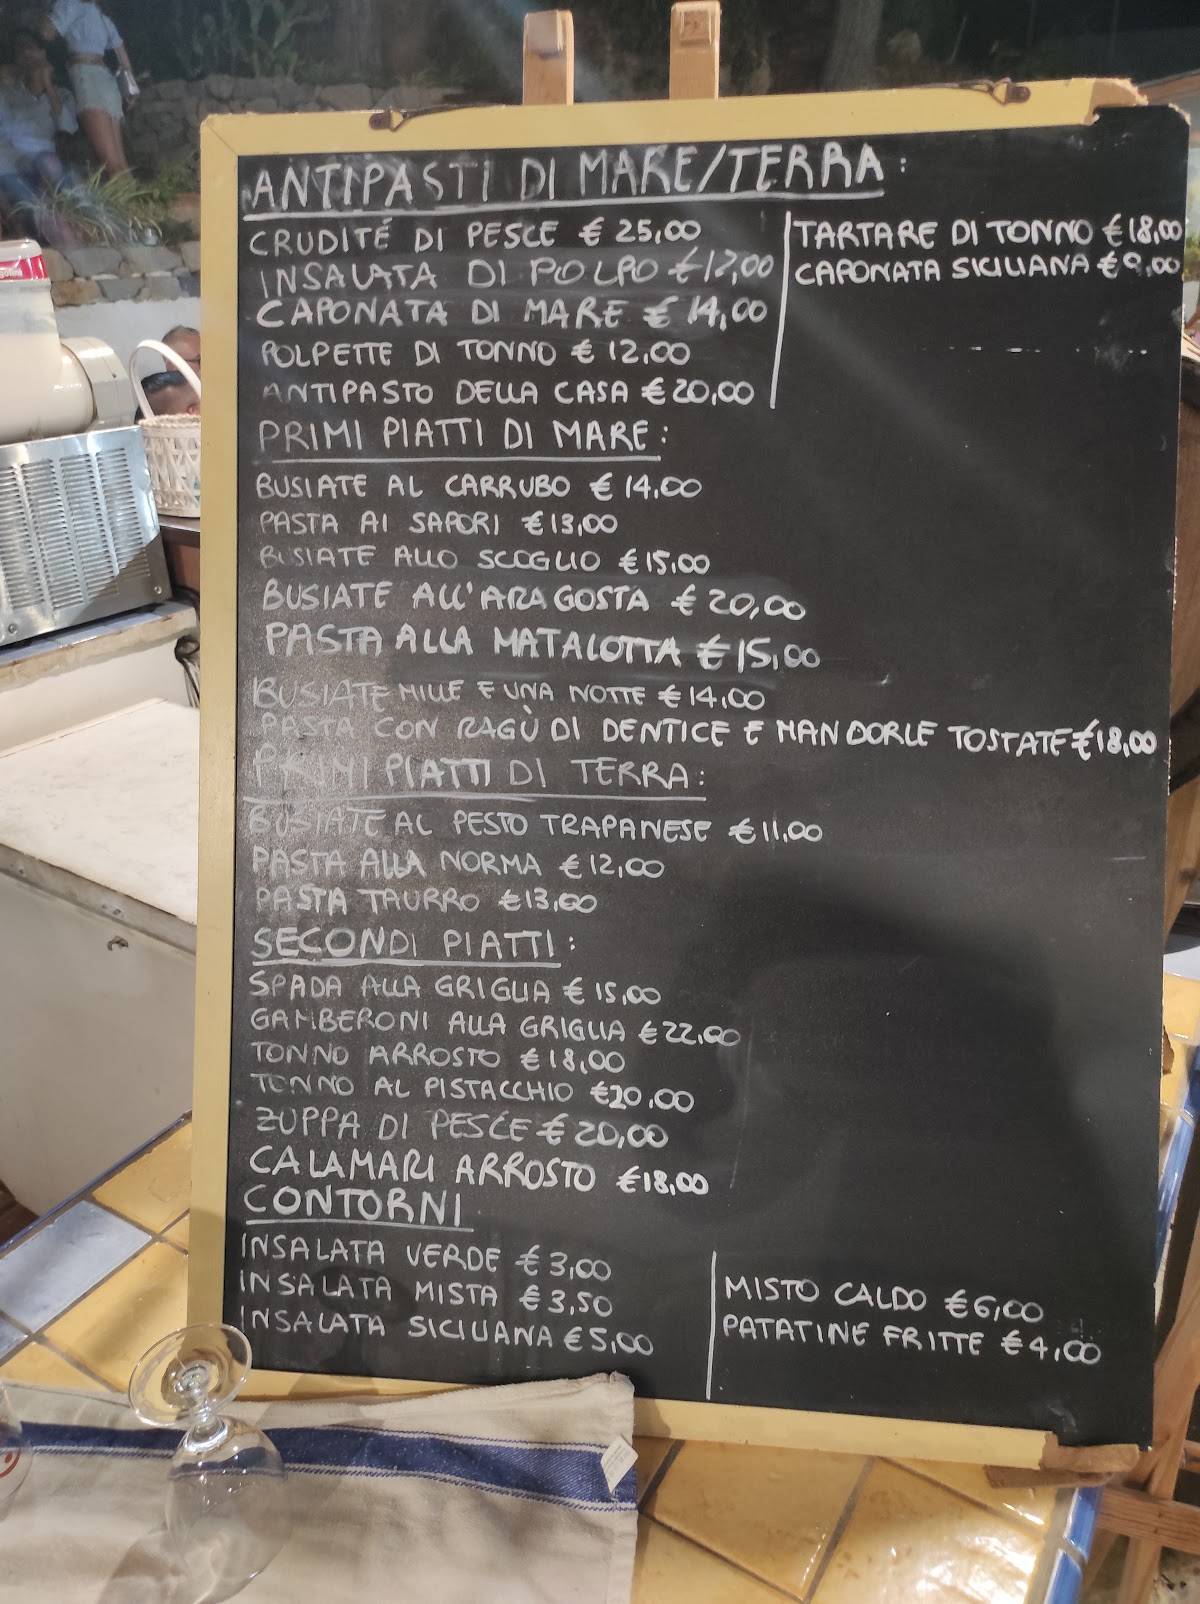 ANTIPASTI DI MARE/TERRA:
CRUDITÉ DI PESCE € 25,00
INSALATA DI POLPO € 12,00
CAPONATA DI MARE € 14,00
POLPETTE DI TONNO € 12,00
ANTIPASTO DELLA CASA € 20,00
TARTARE DI TONNO € 18,00
CAPONATA SICILIANA € 9,00
PRIMI PIATTI DI MARE:
BUSIATE AL CARRUBO € 14,00
PASTA AI SAPORI € 13,00
BUSIATE ALLO SCOGLIO € 15,00
BUSIATE ALL'ARAGOSTA € 20,00
PASTA ALLA MATALOTTA € 15,00
BUSIATE MILLE E UNA NOTTE € 14,00
PASTA CON RAGÙ DI DENTICE E MANDORLE TOSTATE € 18,00
PRIMI PIATTI DI TERRA:
BUSIATE AL PESTO TRAPANESE € 11,00
PASTA ALLA NORMA € 12,00
PASTA TAURRO € 13,00
SECONDI PIATTI:
SPADA ALLA GRIGLIA € 15,00
GAMBERONI ALLA GRIGLIA € 22,00
TONNO ARROSTO € 18,00
TONNO AL PISTACCHIO € 20,00
ZUPPA DI PESCE € 20,00
CALAMARI ARROSTO € 18,00
CONTORNI
INSALATA VERDE € 3,00
INSALATA MISTA € 3,50
INSALATA SICILIANA € 5,00
MISTO CALDO € 6,00
PATATINE FRITTE € 4,00